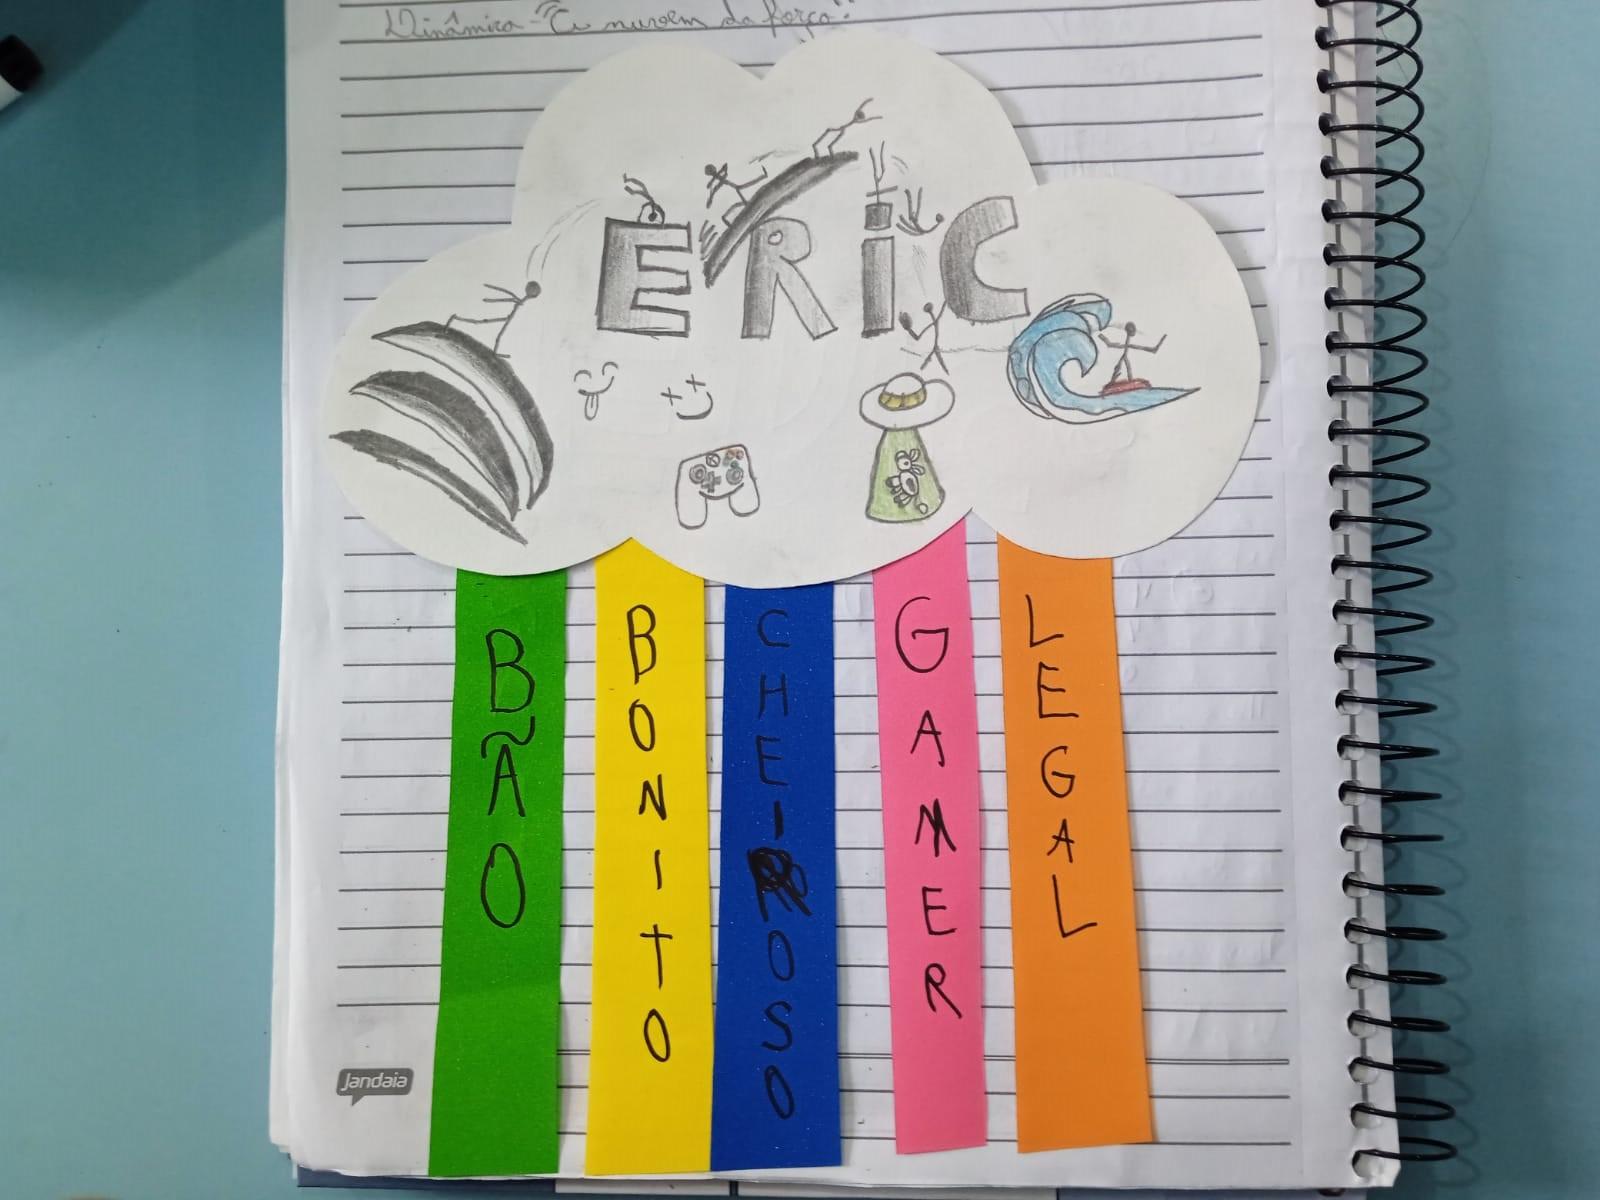 Dinâmica - "A nuvem da força".
ERiC
BÃO
BONITO
CHEIROSO
GAMER
LEGAL
Jandaia